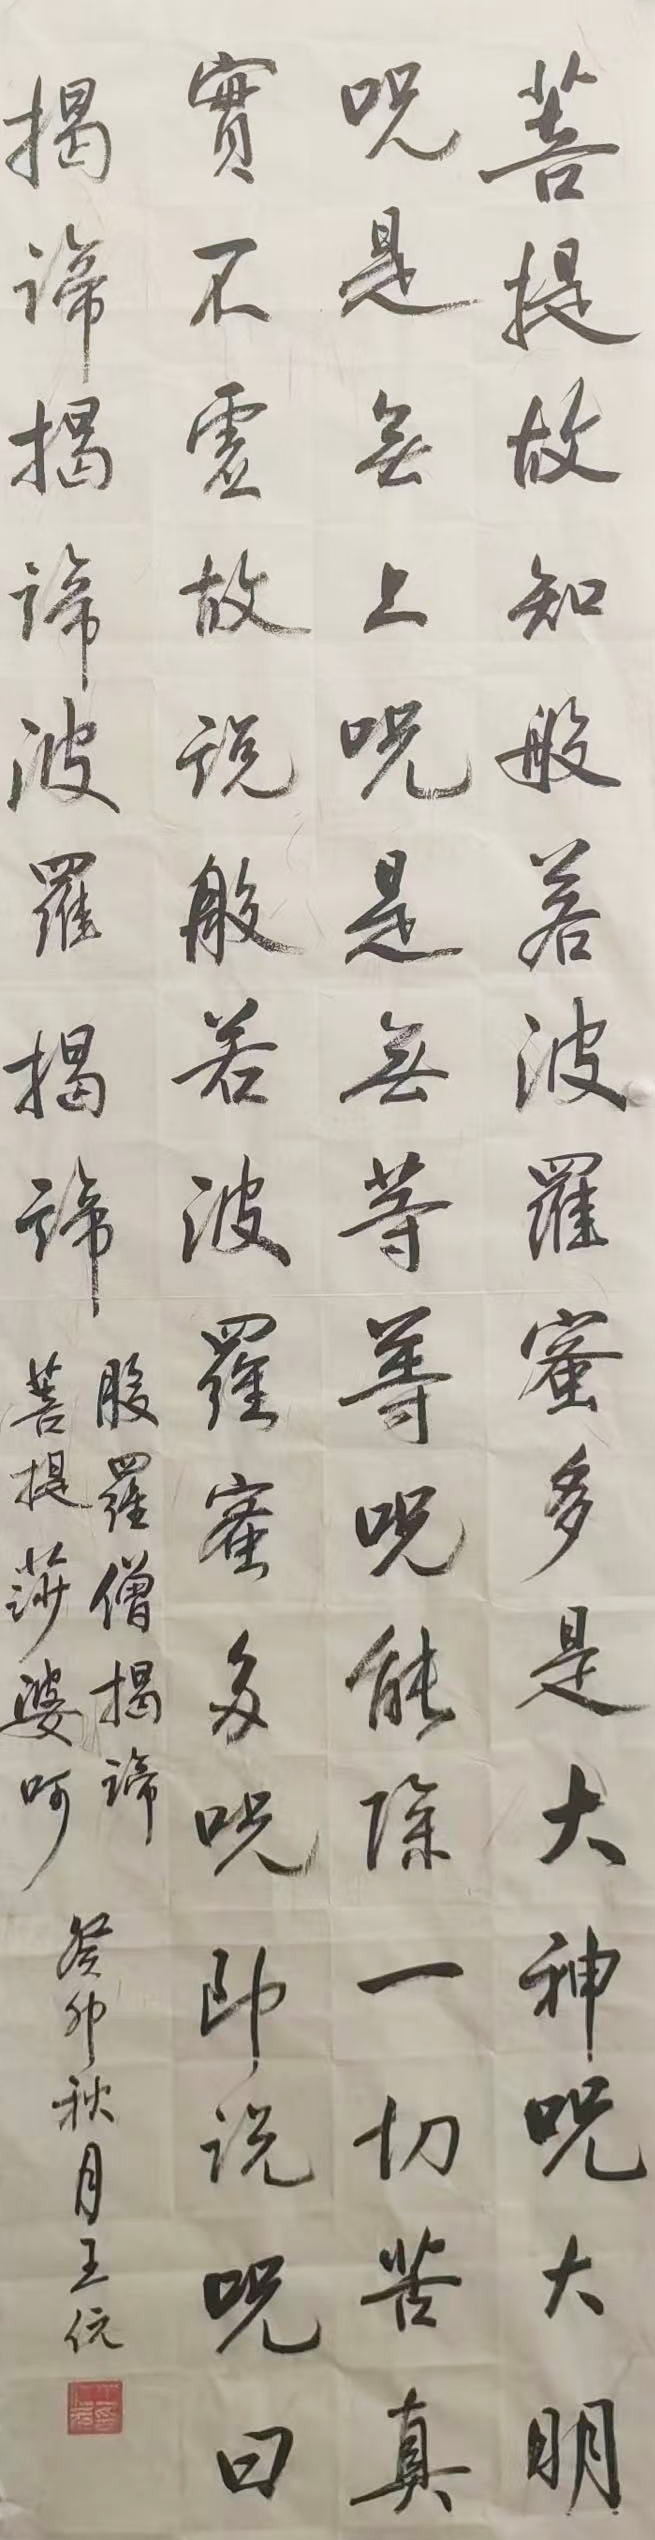 菩提故知般若波羅蜜多是大神呪大明
呪是無上呪是無等等呪能除一切苦真
實不虛故说般若波羅蜜多呪即说呪曰
揭諦揭諦波羅揭諦
般羅僧揭諦
菩提莎婆呵
癸卯秋月王伉